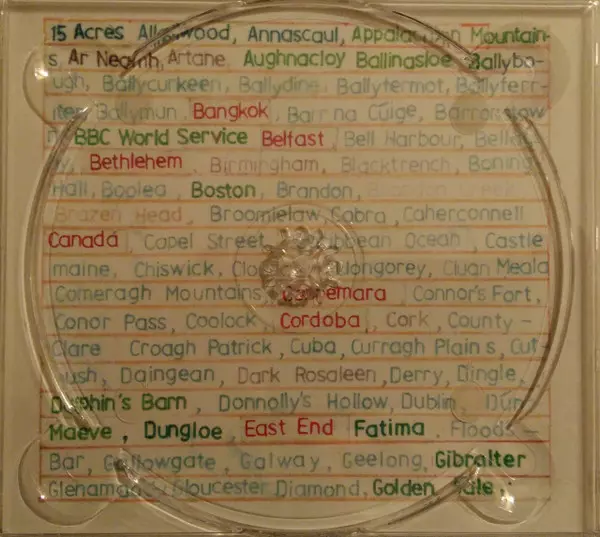 15 Acres Allenwood, Annascaul, Appalachian Mountain-
s, Ar Neamh, Artane, Aughnacloy Ballinasloe Ballybo-
ugh, Ballycurkeen, Ballydine, Ballytermot, Ballyferr-
iter Ballymun, Bangkok, Barr na Cúige, Barrowlaw
BBC World Service Belfast, Bell Harbour,
Bethlehem, Birmingham, Blacktrench,
Hall, Boolea, Boston, Brandon, Brandon Creek
Brazen Head, Broomielaw, Cabra, Caherconnell
Canada, Capel Street, Caribbean Ocean, Castle
maine, Chiswick, Cluan Meala
Comeragh Mountains, Connemara, Connor's Fort,
Conor Pass, Coolock, Cordoba, Cork, County-
Clare Croagh Patrick, Cuba, Curragh Plains, Cut-
bush, Daingean, Dark Rosaleen, Derry, Dingle,
Dolphin's Barn, Donnolly's Hollow, Dublin, Dún
Maeve, Dungloe, East End Fatima, Floods-
Bar, Gallowgate, Galway, Geelong, Gibralter
Gloucester Diamond, Golden Vale,